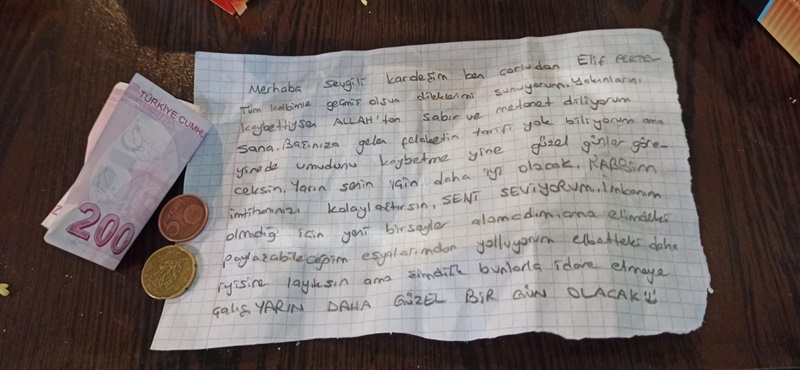 TÜRKİYE CUMHU
200
5
Merhaba sevgili kardeşim ben çorludan Elif
Tüm kalbimle geçmiş olsun dileklerimi sunuyorum. Yakınlarını
kaybettiysen ALLAH'tan sabır ve metanet diliyorum
sana. Başınıza gelen felaketin tarifi yok biliyorum ama
yinede umudunu kaybetme yine güzel günler göre-
ceksin. Yarın senin için daha iyi olacak. RABBİM
imtihanınızı kolaylaştırsın. SENİ SEVİYORUM. İmkanım
olmadığı için yeni birşeyler alamadım, ama elimdeki
paylaşabileceğim eşyalarımdan yolluyorum elbetteki daha
iyisine layıksın ama şimdilik bunlarla idare etmeye
çalış, YARIN DAHA GÜZEL BİR GÜN OLACAK